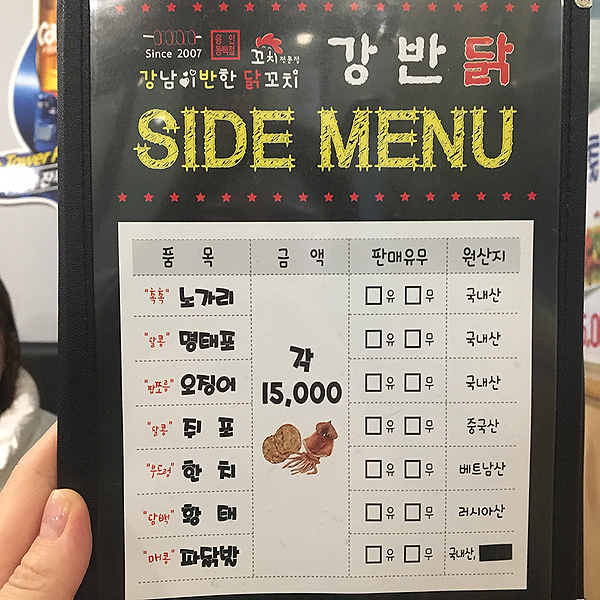 Since 2007
용인
동백점
꼬치전문점
강남이반한 닭꼬치
강반닭
SIDE MENU
품 목 금 액 판매유무 원산지
"촉촉" 노가리 □유 □무 국내산
"달콩" 명태포 □유 □무 국내산
"짭쪼롱" 오징어 □유 □무 국내산
각
15,000
"달콩" 쥐 포 □유 □무 중국산
"부드렁" 한 치 □유 □무 베트남산
"담백" 황 태 □유 □무 러시아산
"매콩" 파닭발 □유 □무 국내산,
Tower